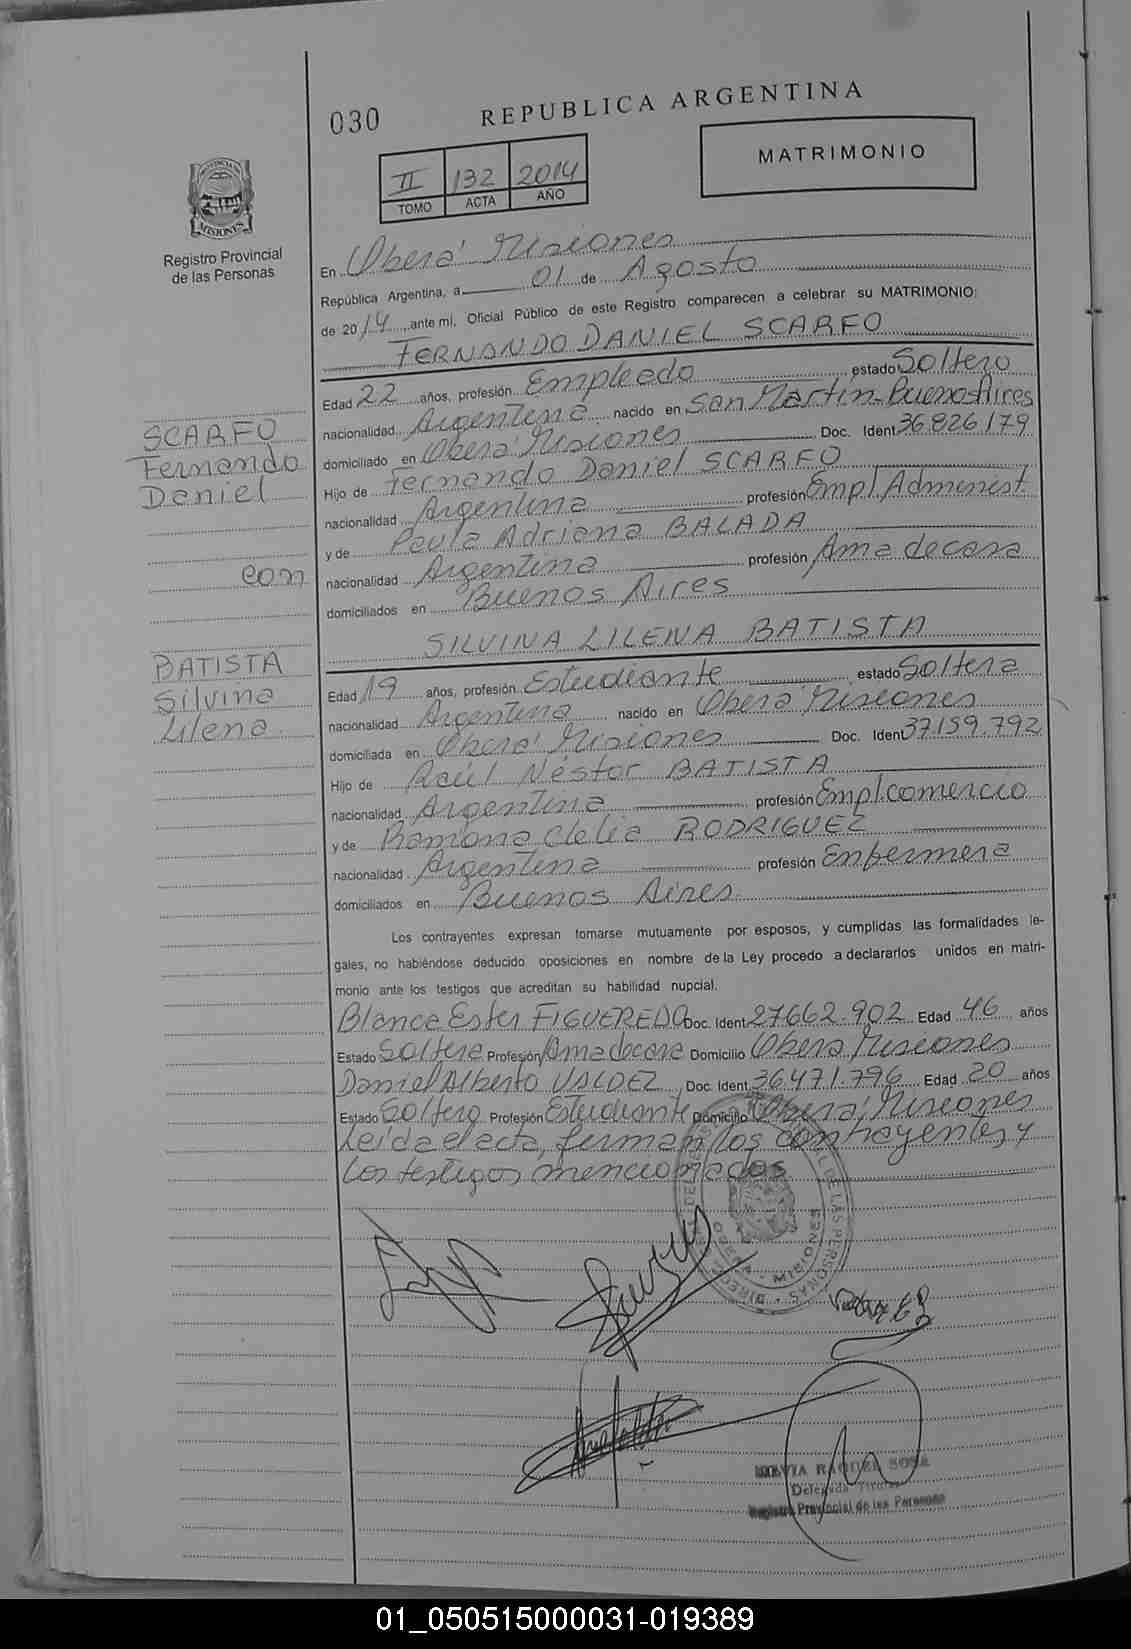 030
REPUBLICA ARGENTINA
MATRIMONIO
II 132 2014
TOMO ACTA AÑO
PROVINCIA MISIONES
Registro Provincial
de las Personas
En Oberá Misiones
República Argentina, a 01 de Agosto
de 2014 ante mí, Oficial Público de este Registro comparecen a celebrar su MATRIMONIO:
FERNANDO DANIEL SCARFO
Edad 22 años, profesión Empleado estado Soltero
nacionalidad Argentina nacido en San Martín-Buenos Aires
domiciliado en Oberá Misiones Doc. Ident 36.826.179
Hijo de Fernando Daniel SCARFO
nacionalidad Argentina profesión Empl. Administ
y de Paula Adriana BALADA
nacionalidad Argentina profesión Ama de casa
domiciliados en Buenos Aires
SCARFO
Fernando
Daniel
con
BATISTA
Silvina
Lilena
SILVINA LILENA BATISTA
Edad 19 años, profesión Estudiante estado Soltera
nacionalidad Argentina nacido en Oberá Misiones
domiciliada en Oberá Misiones Doc. Ident 37.159.792
Hijo de Raúl Néstor BATISTA
nacionalidad Argentina profesión Empl. comercio
y de Ramona Clelia RODRIGUEZ
nacionalidad Argentina profesión Enfermera
domiciliados en Buenos Aires
Los contrayentes expresan tomarse mutuamente por esposos, y cumplidas las formalidades le-
gales, no habiéndose deducido oposiciones en nombre de la Ley procedo a declararlos unidos en matri-
monio ante los testigos que acreditan su habilidad nupcial.
Blanca Ester FIGUEREDO Doc. Ident 27662.902 Edad 46 años
Estado Soltera Profesión Ama de casa Domicilio Oberá Misiones
Daniel Alberto VALDEZ Doc. Ident 36.471.796 Edad 20 años
Estado Soltero Profesión Estudiante Domicilio Oberá, Misiones
Leída el acta, firman los contrayentes y
los testigos mencionados
DE LAS PERSONAS
MISIONES
RAQUEL SOSA
Delegada Titular
Registro Provincial de las Personas
01_050515000031-019389